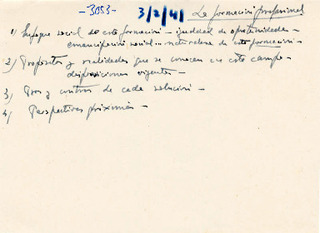 -3053- 3/2/41 La formación profesional
1) Enfoque social de esta formación - igualdad de oportunidades -
emancipación social - naturaleza de esta formación -
2) Propósitos y realidades que se conocen en este campo -
disposiciones vigentes -
3) Pros y contras de cada solución -
4) Perspectivas próximas -